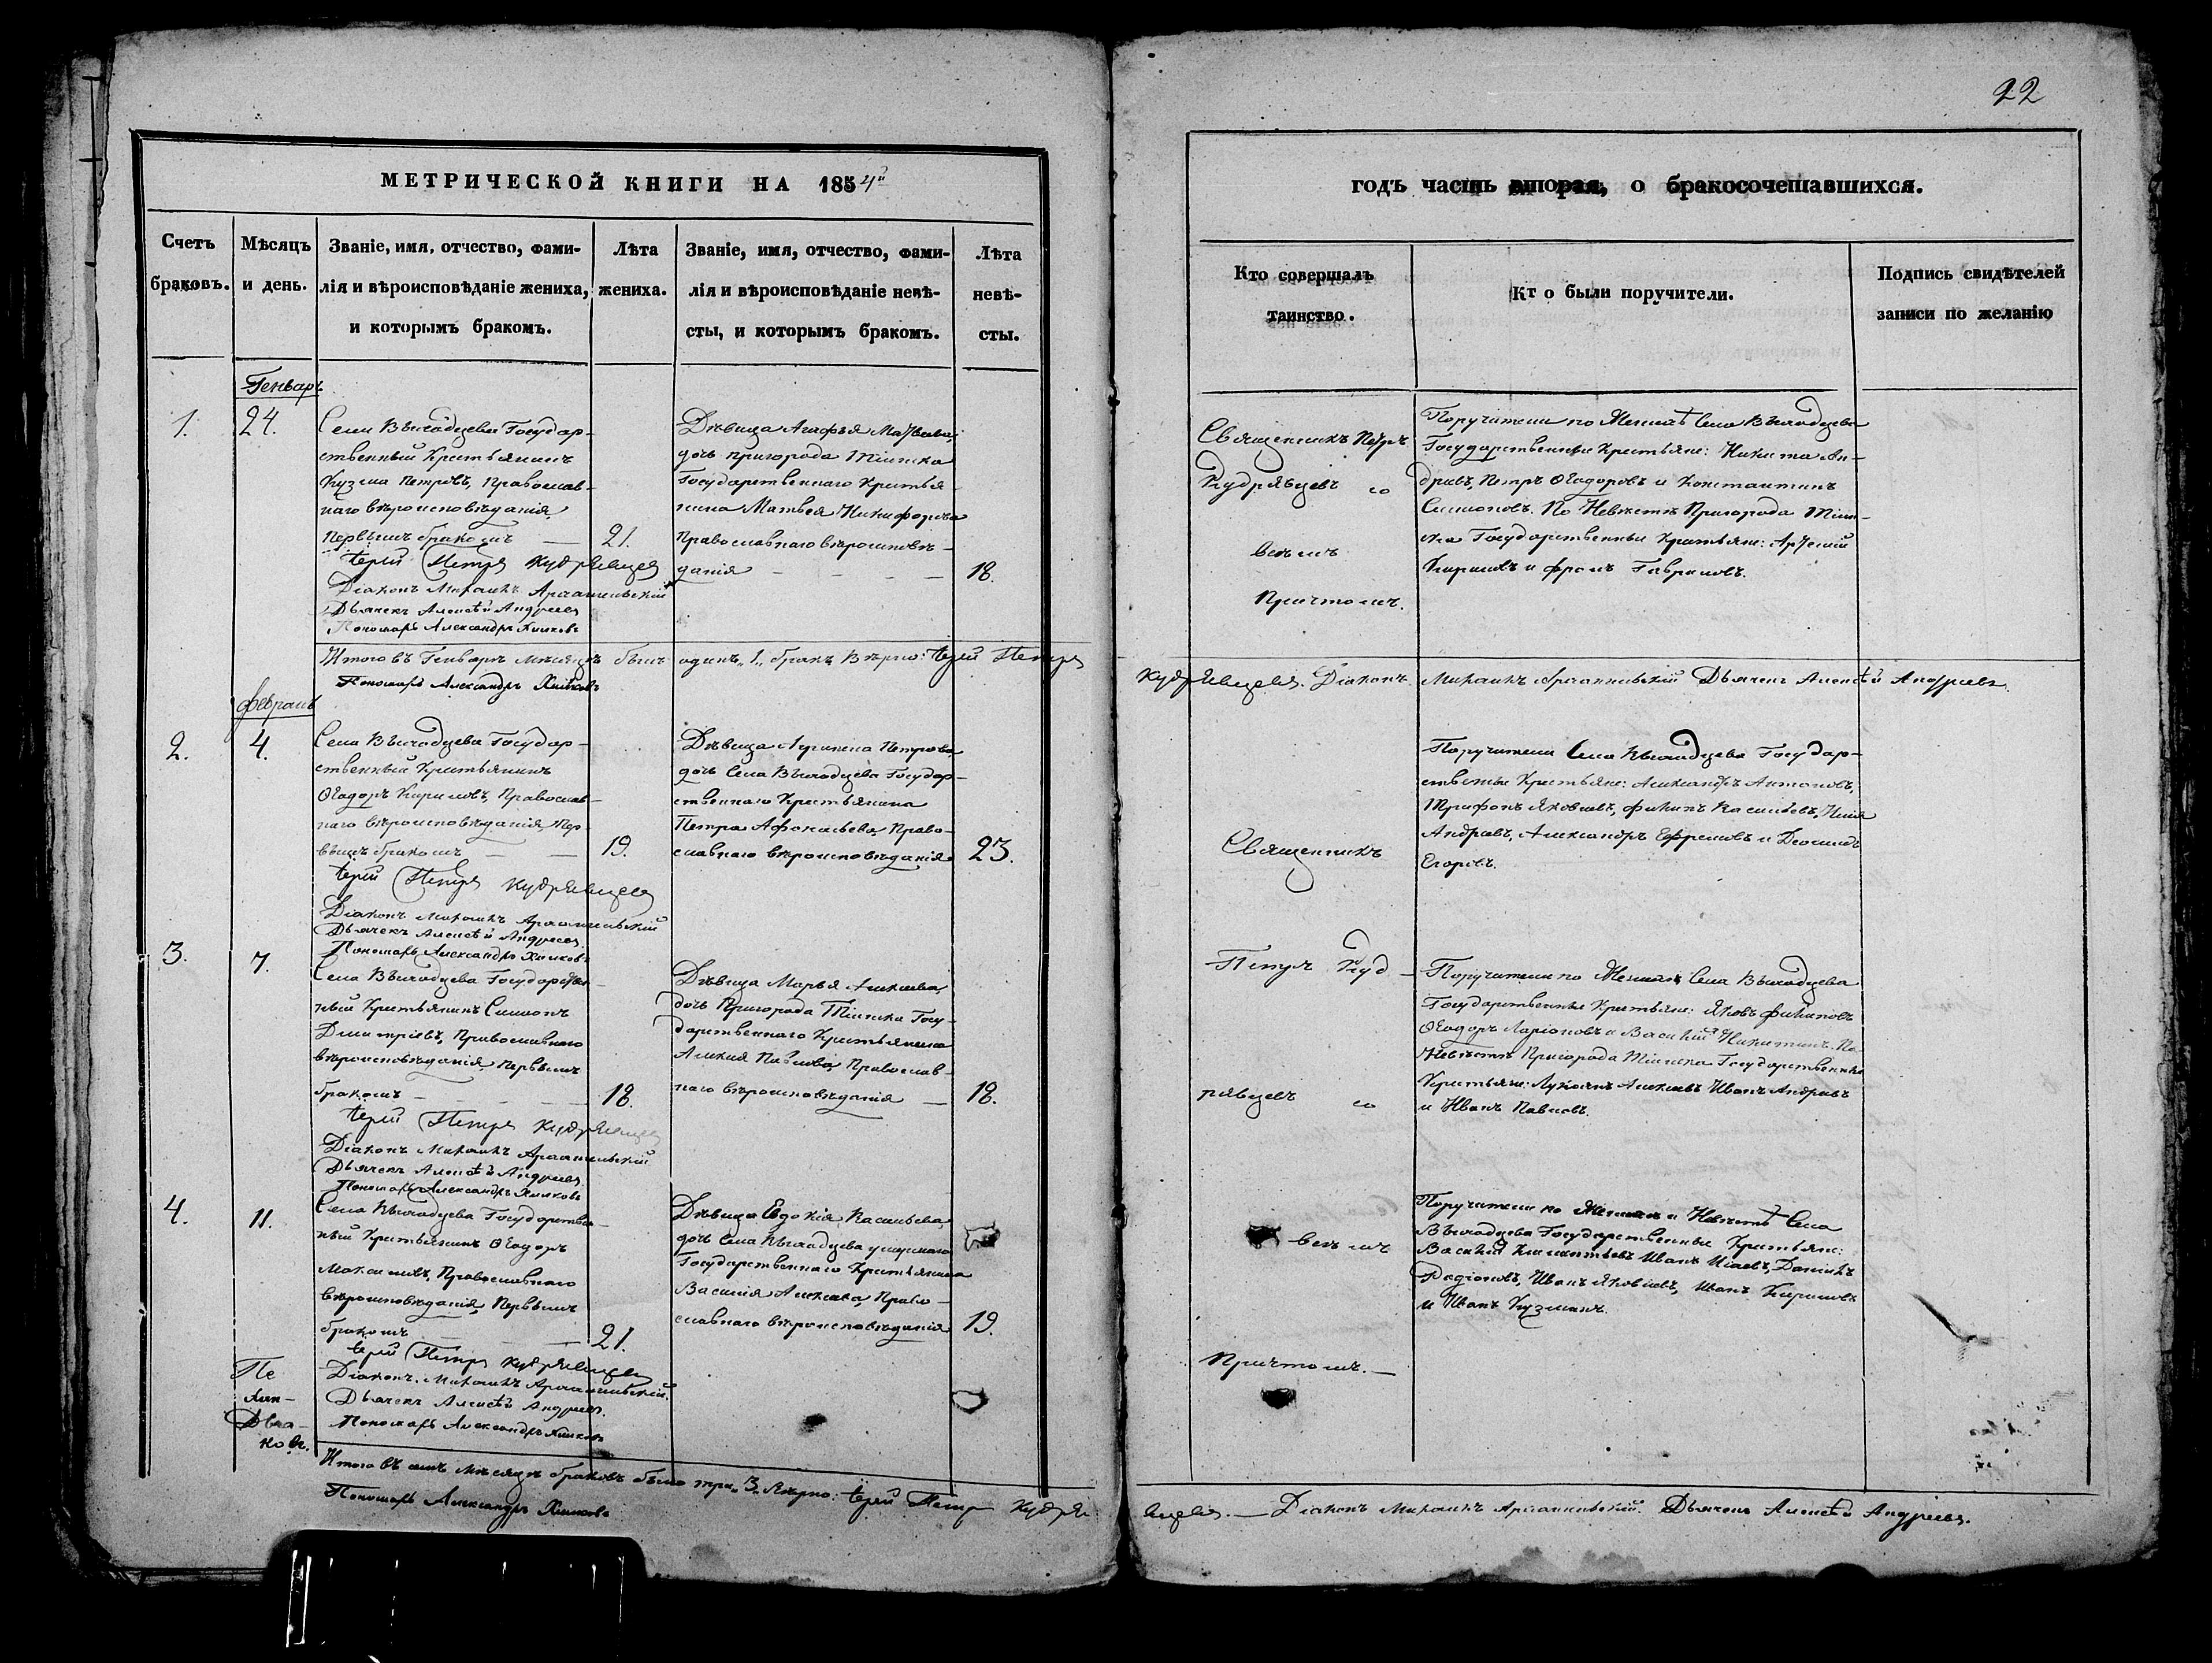 22
МЕТРИЧЕСКОЙ КНИГИ НА 1854й
Счетъ браковъ.
Мѣсяцъ и день.
Званіе, имя, отчество, фами-
лія и вѣроисповѣданіе жениха,
и которымъ бракомъ.
Лѣта
жениха.
Званіе, имя, отчество, фами-
лія и вѣроисповѣданіе невѣ-
сты, и которымъ бракомъ.
Лѣта
невѣ-
сты.
Генварь
1.
24.
Села Выходцева Государ-
ственный Крестьянинъ
Кузма Петровъ, Православ-
наго вѣроисповѣданія,
первымъ бракомъ
21.
Іерей Петръ Кудрявцевъ
Діаконъ Михаилъ Архангельскій
Дьячекъ Алексѣй Андреевъ
Пономарь Александръ Хилковъ
Дѣвица Агафья Матвѣева,
дочь пригорода Тіинска
Государственнаго Крестья-
нина Матвея Никифорова
Православнаго вѣроисповѣ-
данія
18.
Итого въ Генварѣ мѣсяцѣ былъ одинъ „1„ бракъ Вѣрно: Іерей Петръ
Пономарь Александръ Хилковъ
февраль
2.
4.
Села Выходцева Государ-
ственный Крестьянинъ
Ѳеодоръ Кириловъ, Православ-
наго вѣроисповѣданія, Пер-
вымъ бракомъ
19.
Іерей Петръ Кудрявцевъ
Діаконъ Михаилъ Архангельскій
Дьячекъ Алексѣй Андреевъ
Пономарь Александръ Хилковъ
Дѣвица Агрипена Петрова,
дочь Села Выходцева Государ-
ственнаго Крестьянина
Петра Афонасьева, Право-
славнаго вѣроисповѣданія
23.
3.
7.
Села Выходцева Государствен-
ный Крестьянинъ Симионъ
Дмитріевъ, Православнаго
вѣроисповѣданія, Первымъ
бракомъ
18.
Іерей Петръ Кудрявцевъ
Діаконъ Михаилъ Архангельскій
Дьячекъ Алексѣй Андреевъ
Пономарь Александръ Хилковъ
Дѣвица Марья Алексѣева,
дочь Пригорода Тіинска Госу-
дарственнаго Крестьянина
Алексия Павлова, Православ-
наго вѣроисповѣданія
18.
4.
11.
Села Выходцева Государствен-
ный Крестьянинъ Ѳеодоръ
Максимовъ, Православнаго
вѣроисповѣданія, Первымъ
бракомъ
21.
Іерей Петръ Кудрявцевъ
Діаконъ Михаилъ Архангельскій.
Дьячекъ Алексѣй Андреевъ.
Пономарь Александръ Хилковъ
Дѣвица Евдокія Васильева,
дочь Села Выходцева умершаго
Государственнаго Крестьянина
Василія Алексѣева, Право-
славнаго вѣроисповѣданія
19.
Итого въ семъ мѣсяцѣ браковъ было три „3„ Вѣрно: Іерей Петръ Кудря-
Пономарь Александръ Хилковъ
годъ часть вторая, о бракосочетавшихся.
Кто совершалъ
таинство.
Кто были поручители.
Подпись свидѣтелей
записи по желанію
Священникъ Петръ
Кудрявцевъ со
всемъ
Причтомъ.
Поручители по Женихѣ Села Выходцева
Государственные Крестьяне: Никита Ан-
дреевъ, Петръ Ѳеодоровъ и Константинъ
Симионовъ. По Невѣстѣ Пригорода Тіин-
ска Государственные Крестьяне: Арсеній
Кириловъ и Фролъ Гавриловъ.
Кудрявцевъ. Діаконъ Михаилъ Архангельскій Дьячекъ Алексѣй Андреевъ.
Священникъ
Петръ Куд-
рявцевъ со
всемъ
Причтомъ.
Поручители Села Выходцева Государ-
ственные Крестьяне: Александръ Антоновъ,
Трифонъ Яковлевъ, Филипъ Васильевъ,
Андреевъ, Александръ Ефремовъ и
Егоровъ.
Поручители по Женихѣ Села Выходцева
Государственные Крестьяне: Яковъ Филиповъ
Ѳеодоръ Ларіоновъ и Василій Никитинъ. По
Невѣстѣ Пригорода Тіинска Государственные
Крестьяне: Лукоянъ Алексѣевъ Иванъ Андреевъ
и Иванъ Павловъ.
Поручители по Женихѣ и Невѣстѣ Села
Выходцева Государственные Крестьяне:
Василій Климантьевъ Иванъ Исаевъ, Данилъ
Родіоновъ, Иванъ Яковлевъ, Иванъ Кириловъ
и Иванъ Кузминъ.
вцевъ. — Діаконъ Михаилъ Архангельскій. Дьячекъ Алексѣй Андреевъ.